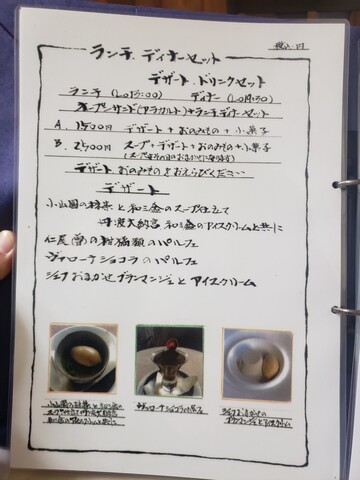 ランチ、ディナーセット
税込・円
デザート、ドリンクセット
ランチ (LO15:00) ディナー (LO19:30)
オープンサンド(アラカルト)+ランチ、ディナーセット
A. 1500円 デザート+おのみもの+小菓子
B. 2500円 スープ+デザート+おのみもの+小菓子
デザート、おのみものをおえらびください
デザート
小山園の抹茶と和三盆のスープ仕立て
丹波大納言 和三盆のアイスクリームと共に
仁尾(香)の柑橘類のパルフェ
ヴァローナショコラのパルフェ
シェフおまかせブランマンジェとアイスクリーム
小山園の抹茶と和三盆の
ヴァローナショコラのパルフェ
シェフおまかせの
ブランマンジェとアイスクリーム